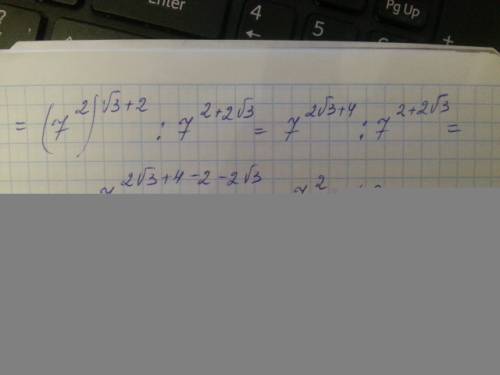 Enter
4
5
Pg Up
= (7^2)^{√3+2} : 7^{2+2√3} = 7^{2√3+4} : 7^{2+2√3} =
7^{2√3+4-2-2√3} 7^2